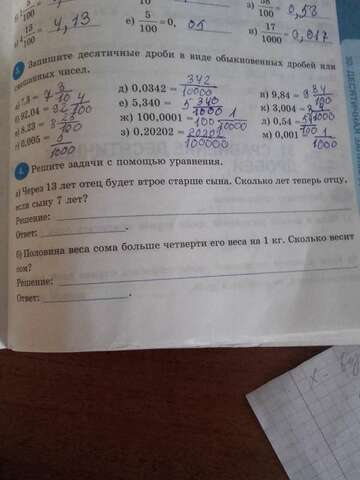 100 = 4,13
е) 5/100 = 0, 05
з) 58/100 = 0,58
13/100
и) 17/1000 = 0,017
3. Запишите десятичные дроби в виде обыкновенных дробей или
смешанных чисел.
а) 7,3 = 7 3/10 д) 0,0342 = 342/10000 и) 9,84 = 9 84/100
б) 92,04 = 92 4/100 е) 5,340 = 5 340/1000 к) 3,004 = 3 4/1000
в) 8,23 = 8 23/100 ж) 100,0001 = 100 1/10000 л) 0,54 = 54/100
г) 0,005 = 5/1000 з) 0,20202 = 20202/100000 м) 0,001 = 1/1000
4. Решите задачи с помощью уравнения.
а) Через 13 лет отец будет втрое старше сына. Сколько лет теперь отцу,
если сыну 7 лет?
Решение:
Ответ:
б) Половина веса сома больше четверти его веса на 1 кг. Сколько весит
сом?
Решение:
Ответ:
x =